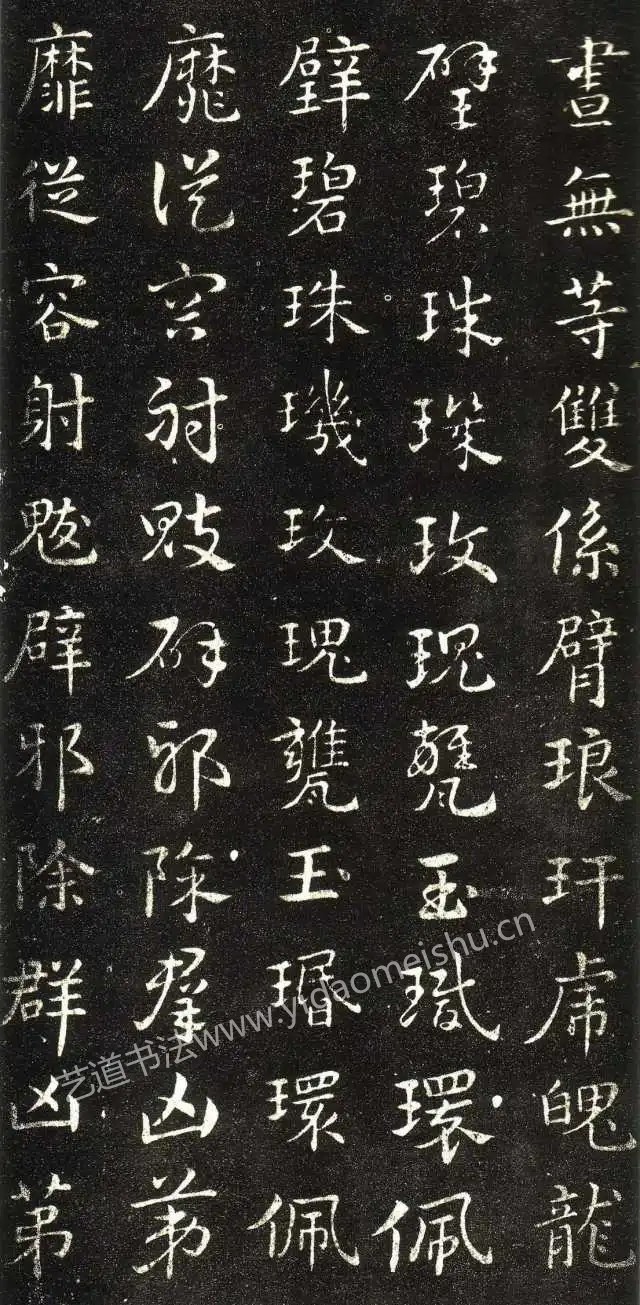 畫無等雙係臂琅玕虎魄龍
璧碧珠璣玫瑰甕玉環佩
璧碧珠璣玫瑰甕玉環佩
靡從容射鬾辟邪除群凶第
靡從容射鬾辟邪除群凶第
艺道书法www.yidaomeishu.cn